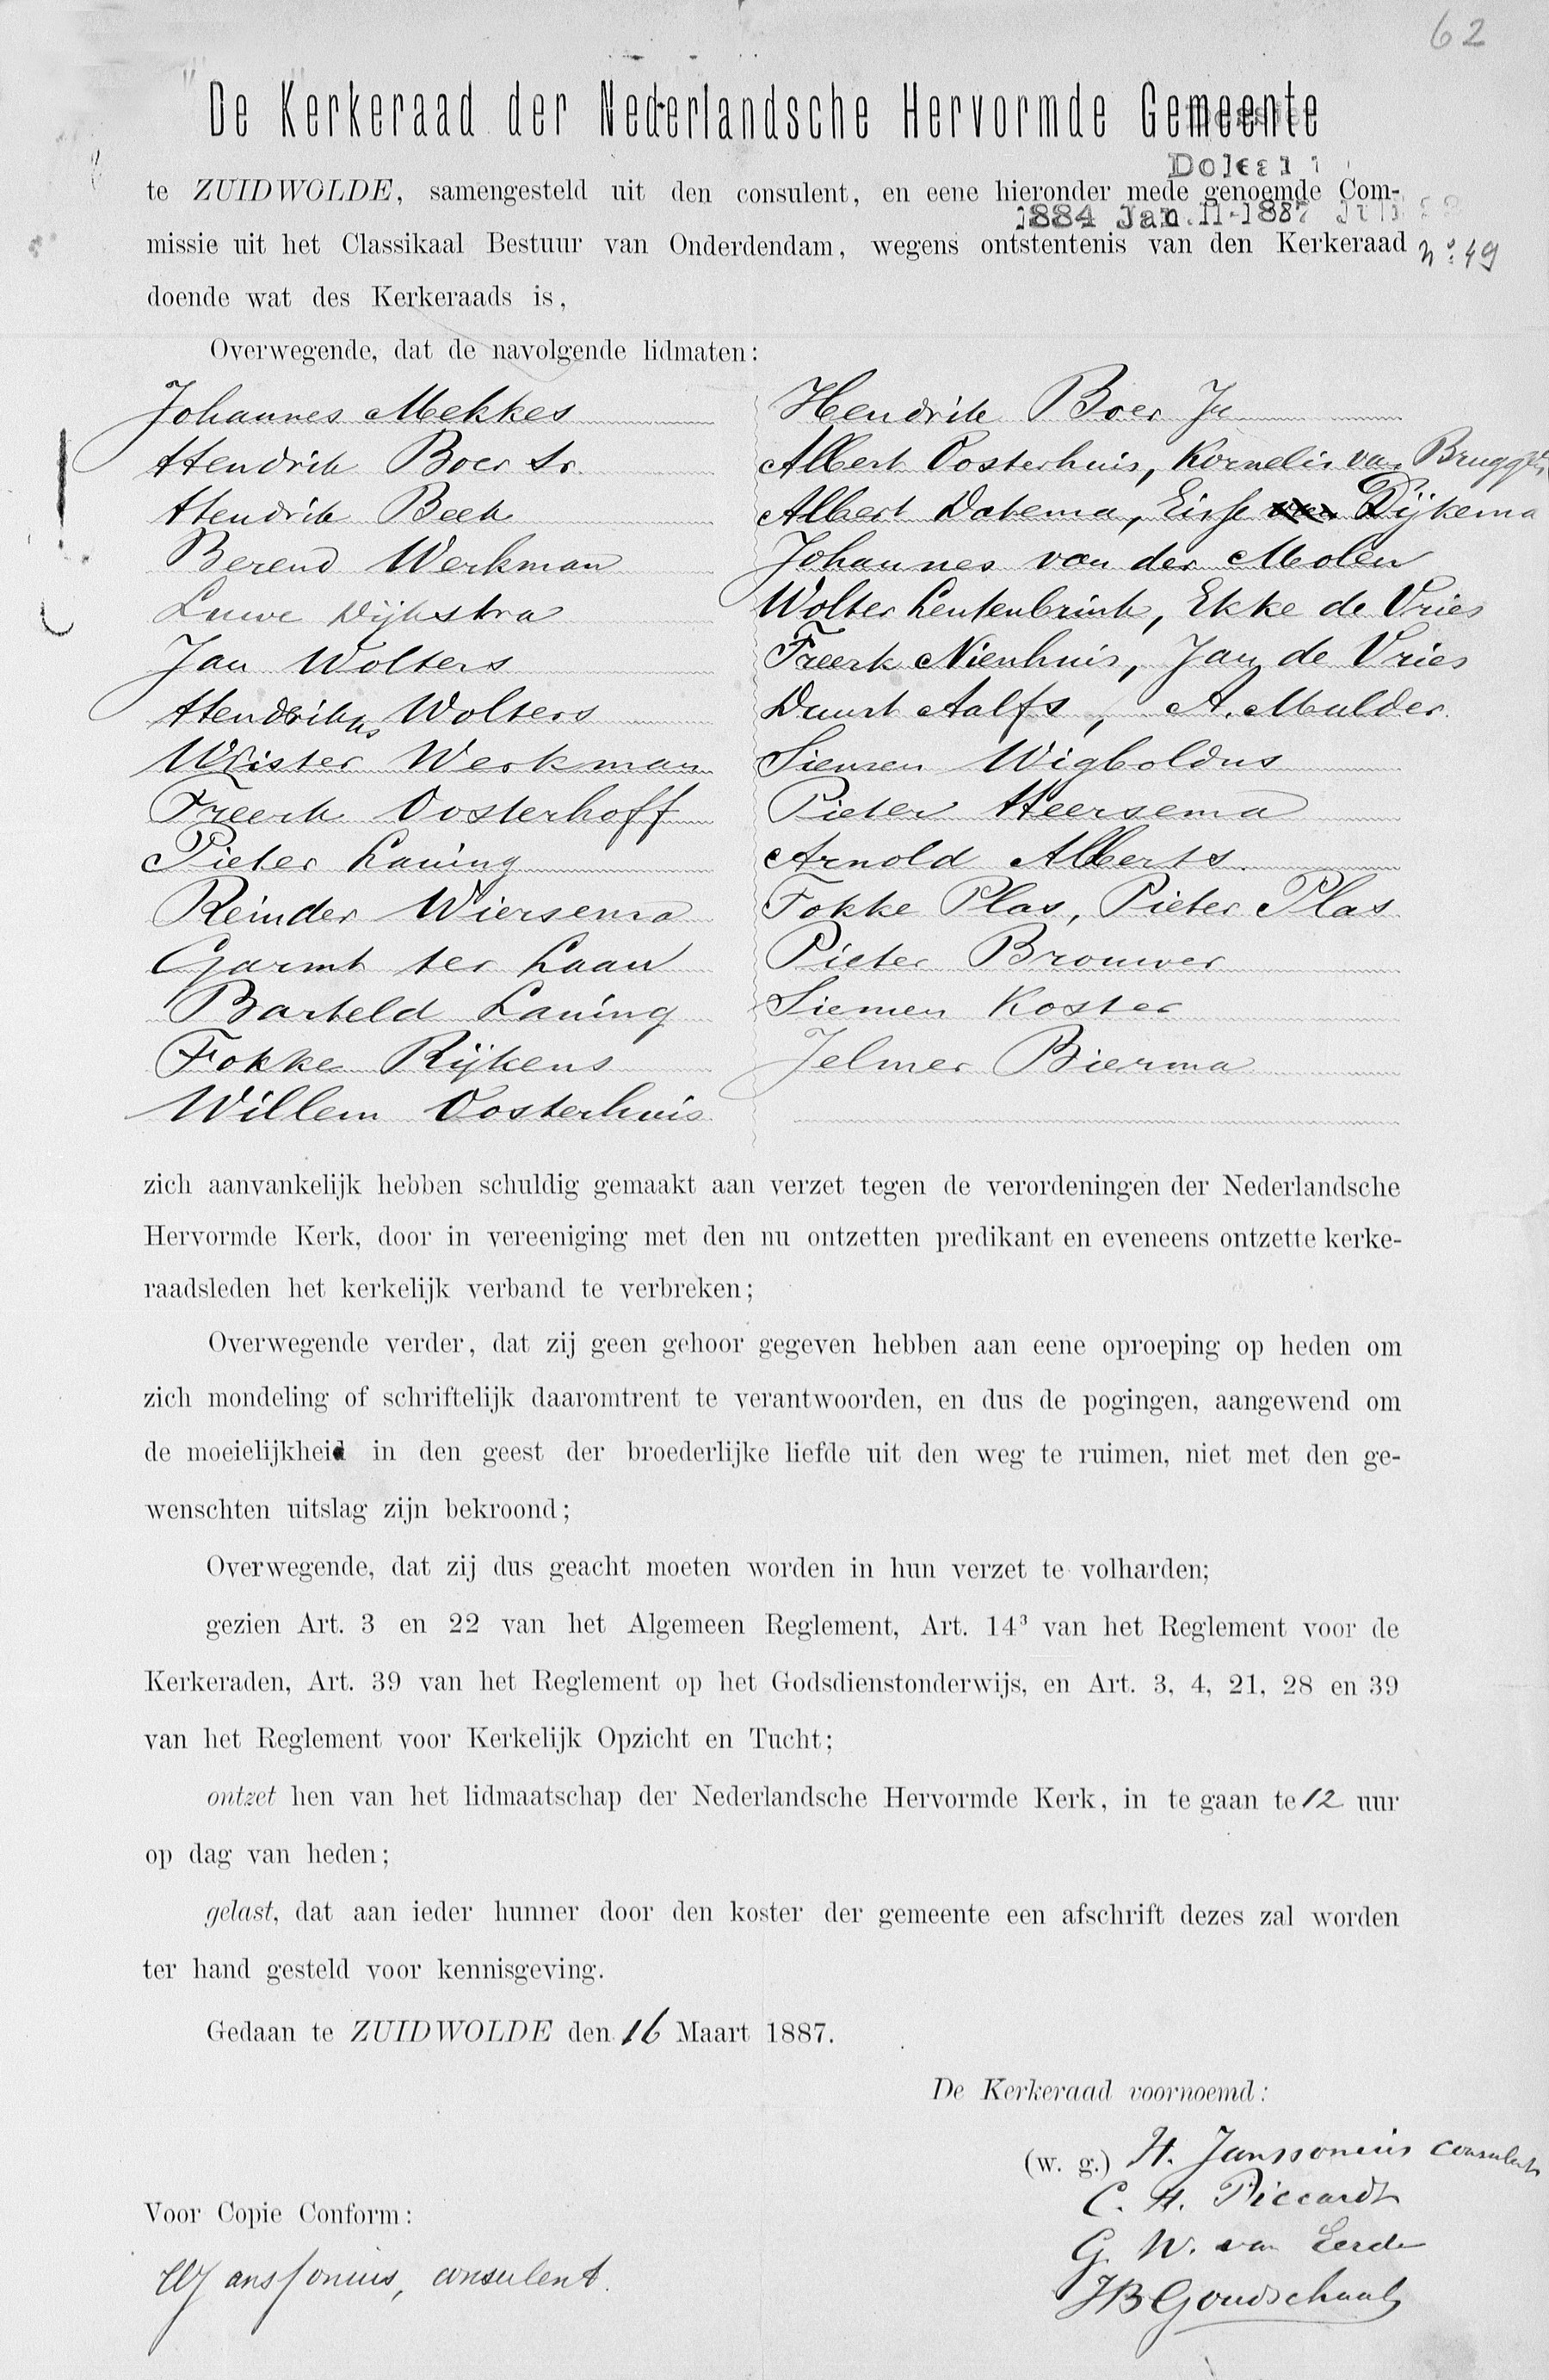 62
De Kerkeraad der Nederlandsche Hervormde Gemeente
Doleant
te ZUIDWOLDE, samengesteld uit den consulent, en eene hieronder mede genoemde Com-
1884 Jan. 11-1887
missie uit het Classikaal Bestuur van Onderdendam, wegens ontstentenis van den Kerkeraad
no: 49
doende wat des Kerkeraads is,
Overwegende, dat de navolgende lidmaten:
Johannes Mekkes
Hendrik Boer Sr.
Hendrik Beek
Berend Werkman
Luwe Dijkstra
Jan Wolters
Hendrikus Wolters
Werkman
Freerk Oosterhoff
Pieter Laning
Reinder Wiersema
Garmt ter Laan
Barteld Laning
Fokke Rijkens
Willem Oosterhuis
Hendrik Boer Jr
Albert Oosterhuis, Kornelis van Bruggen
Albert Datema, Eisse Dijkema
Johannes van der Molen
Wolter Leutenbrink, Ekke de Vries
Freerk Nienhuis, Jan de Vries
Duurt Aalfs, A. Mulder
Siemen Wigboldus
Pieter Heersema
Arnold Alberts
Fokke Plas, Pieter Plas
Pieter Brouwer
Siemen Koster
Jelmer Bierma
zich aanvankelijk hebben schuldig gemaakt aan verzet tegen de verordeningen der Nederlandsche
Hervormde Kerk, door in vereeniging met den nu ontzetten predikant en eveneens ontzette kerke-
raadsleden het kerkelijk verband te verbreken;
Overwegende verder, dat zij geen gehoor gegeven hebben aan eene oproeping op heden om
zich mondeling of schriftelijk daaromtrent te verantwoorden, en dus de pogingen, aangewend om
de moeielijkheid in den geest der broederlijke liefde uit den weg te ruimen, niet met den ge-
wenschten uitslag zijn bekroond;
Overwegende, dat zij dus geacht moeten worden in hun verzet te volharden;
gezien Art. 3 en 22 van het Algemeen Reglement, Art. 14³ van het Reglement voor de
Kerkeraden, Art. 39 van het Reglement op het Godsdienstonderwijs, en Art. 3, 4, 21, 28 en 39
van het Reglement voor Kerkelijk Opzicht en Tucht;
ontzet hen van het lidmaatschap der Nederlandsche Hervormde Kerk, in te gaan te 12 uur
op dag van heden;
gelast, dat aan ieder hunner door den koster der gemeente een afschrift dezes zal worden
ter hand gesteld voor kennisgeving.
Gedaan te ZUIDWOLDE den 16 Maart 1887.
De Kerkeraad voornoemd:
(w. g.) H. Janssonius consulent
C. H. Piccardt
G. W. van Eerde
JB Goudschaal
Voor Copie Conform:
HJanssonius, consulent.